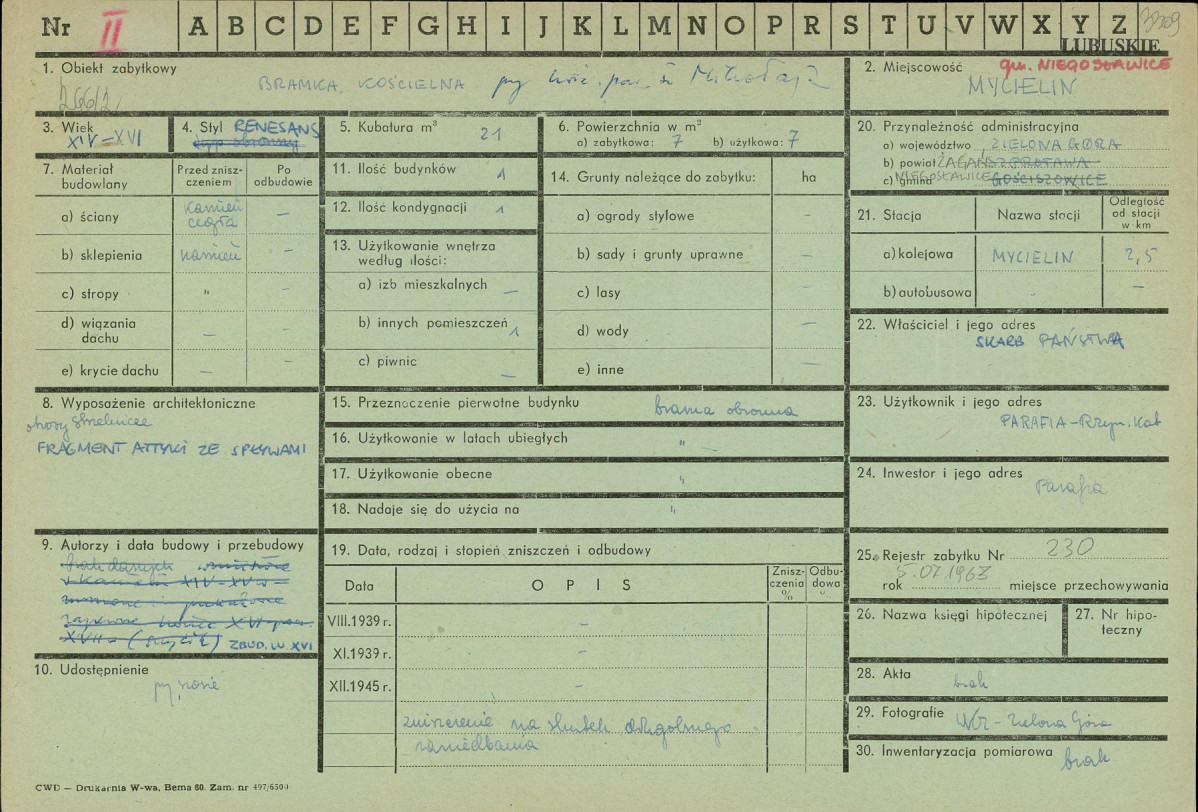 Nr II A B C D E F G H I J K L M N O P R S T U V W X Y Z 3209
LUBUSKIE
1. Obiekt zabytkowy
BRAMKA KOŚCIELNA przy kośc. par. św Mikołaja
2. Miejscowość gm. NIEGOSŁAWICE
MYCIELIN
3. Wiek
XIV – XVI
4. Styl RENESANS
typ obronny
5. Kubatura m³
21
6. Powierzchnia w m²
a) zabytkowa: 7 b) użytkowa: 7
7. Materiał budowlany
Przed zniszczeniem
Po odbudowie
a) ściany kamień cegła –
b) sklepienia kamień –
c) stropy " –
d) wiązania dachu – –
e) krycie dachu – –
8. Wyposażenie architektoniczne
otwory strzelnicze
FRAGMENT ATTYKI ZE SPŁYWAMI
9. Autorzy i data budowy i przebudowy
brak danych
XIV-XV w
koniec XVI
XVII
ZBUD. W XVI
10. Udostępnienie
przy szosie
11. Ilość budynków 1
12. Ilość kondygnacji 1
13. Użytkowanie wnętrza według ilości:
a) izb mieszkalnych –
b) innych pomieszczeń 1
c) piwnic –
14. Grunty należące do zabytku: ha
a) ogrody stylowe –
b) sady i grunty uprawne –
c) lasy –
d) wody –
e) inne –
15. Przeznoczenie pierwotne budynku brama obronna
16. Użytkowanie w latach ubiegłych "
17. Użytkowanie obecne "
18. Nadaje się do użycia na "
19. Data, rodzaj i stopień zniszczeń i odbudowy
Data OPIS Zniszczenia % Odbudowa %
VIII.1939 r. –
XI.1939 r. –
XII.1945 r. –
zniszczenie na skutek długoletniego
zaniedbania
20. Przynależność administracyjna
a) województwo ZIELONA GÓRA
b) powiat ŻAGAŃ SZPROTAWA
c) gmina NIEGOSŁAWICE GOŚCISZOWICE
21. Stacja Nazwa stacji Odległość od stacji w km
a) kolejowa MYCIELIN 2,5
b) autobusowa - –
22. Właściciel i jego adres
SKARB PAŃSTWA
23. Użytkownik i jego adres
PARAFIA – Rzym. Kat
24. Inwestor i jego adres
Parafia
25. Rejestr zabytku Nr 230
rok 5.07.1963 miejsce przechowywania
26. Nazwa księgi hipotecznej
27. Nr hipoteczny
28. Akta brak
29. Fotografie WKZ – Zielona Góra
30. Inwentaryzacja pomiarowa brak
CWD — Drukarnia W-wa, Bema 60. Zam. nr 497/6500